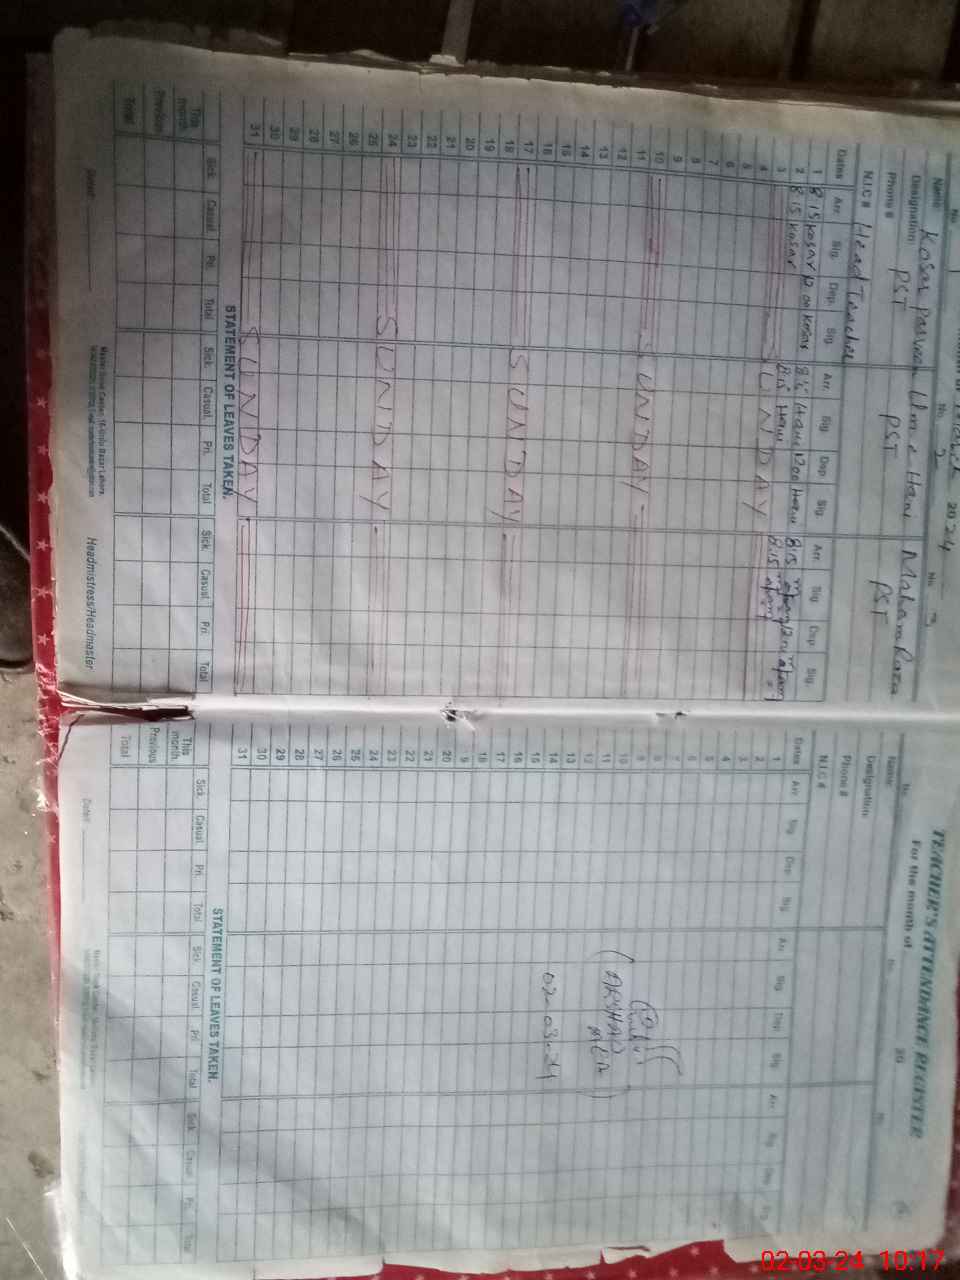 No. 1 No. 2 No. 3
March 2024
Name Kosar Parveen Um e Hani Maham Raza
Designation PST PST PST
Phone #
N.I.C # Head Teacher
Dates Arr. Sig. Dep. Sig. Arr. Sig. Dep. Sig. Arr. Sig. Dep. Sig.
1 8:15 Kosar 12:00 Kosar 8:15 Hani 12:00 Hani 8:15
2 8:15 Kosar 8:15 Hani 8:15
3 SUNDAY
4
5
6
7
8
9
10 SUNDAY
11
12
13
14
15
16
17 SUNDAY
18
19
20
21
22
23
24 SUNDAY
25
26
27
28
29
30
31 SUNDAY
STATEMENT OF LEAVES TAKEN.
Sick. Casual. Pri. Total Sick. Casual. Pri. Total Sick. Casual. Pri. Total
This month.
Previous
Total
Dated
Headmistress/Headmaster
TEACHER'S ATTENDANCE REGISTER
For the month of 20
No. No. No.
Name
Designation:
Phone #
N.I.C #
Dates Arr. Sig. Dep. Sig. Arr. Sig. Dep. Sig. Arr. Sig. Dep. Sig.
1
2
3
4
5
6
7
8
9
10
11
12
13
14
15
16
17
18
19
20
21
22
23
24
25
26
27
28
29
30
31
(ARSHAD
MEA)
02-03-24
STATEMENT OF LEAVES TAKEN.
Sick. Casual. Pri. Total Sick. Casual. Pri. Total Sick. Casual. Pri. Total
This month.
Previous
Total
Dated
02-03-24 10:17